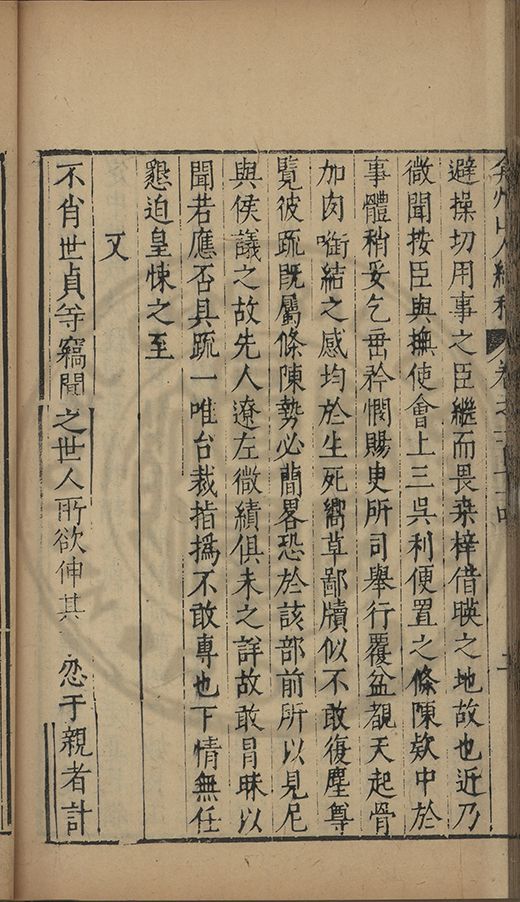 弇州山人續稿 卷之
避操切用事之臣繼而畏桒梓借暎之地故也近乃
微聞按臣與撫使會上三吳利便置之條陳欵中於
事體稍妥乞垂矜憫賜所司舉行覆盆覩天起骨
加肉啣結之感均於生死嚮草鄙牘似不敢復塵尊
覽彼疏既屬條陳勢必簡畧恐於該部前所以見尼
與侯議之故先人遼左微績俱未之詳故敢冒昧以
聞若應否具疏一唯台裁指撝不敢專也下情無任
懇迫皇悚之至
又
不肖世貞等竊聞之世人所欲伸其 忿于親者計